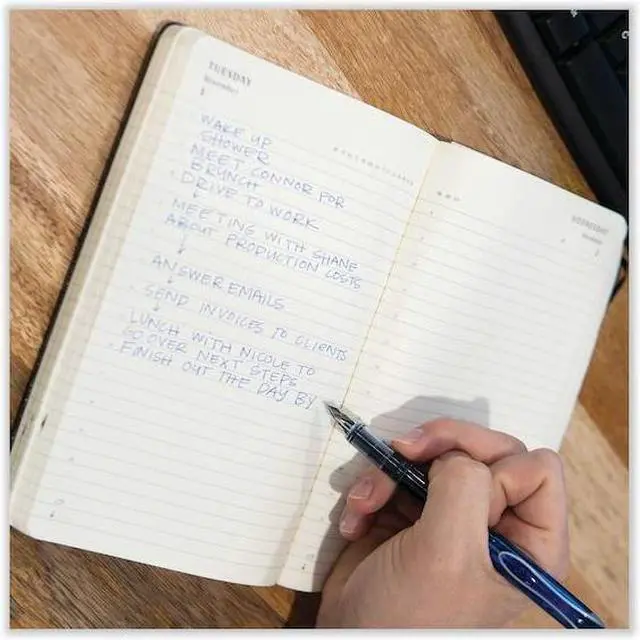 TUESDAY
November
1
WAKE UP
SHOWER
MEET CONNOR FOR
BRUNCH
DRIVE TO WORK
MEETING WITH SHANE
ABOUT PRODUCTION COSTS
ANSWER EMAILS
SEND INVOICES TO CLIENTS
LUNCH WITH NICOLE TO
GO OVER NEXT STEPS
FINISH OUT THE DAY BY
WEDNESDAY
November